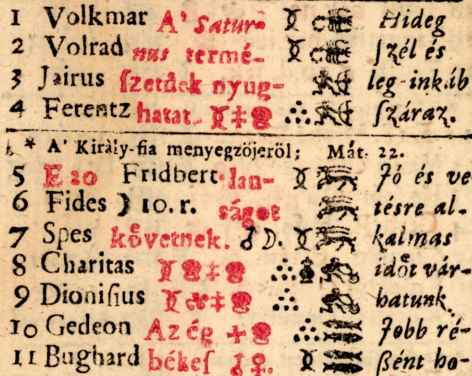 1 Volkmar A' Satur- Hideg
2 Volrad nus termé- ſzél és
3 Jairus ſzetŭek nyug- leg-inkáb
4 Ferentz hatat. ſzáraz.
* A' Király-fia menyegzöjeröl; Mát. 22.
5 E 20 Fridbert lan- Jó és ve
6 Fides ☽ 10. r. ságot tésre al-
7 Spes kö̊vetnek. ♂ D. kalmas
8 Charitas időt vár-
9 Dioniſius hatunk
10 Gedeon Az ég Jobb ré-
11 Bughard békeſ ßént ho-